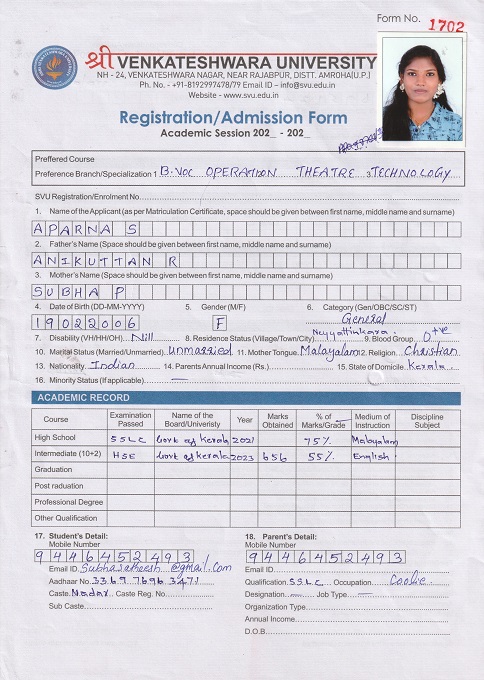 Form No. 1702
श्री VENKATESHWARA UNIVERSITY
NH - 24, VENKATESHWARA NAGAR, NEAR RAJABPUR, DISTT. AMROHA(U.P.)
Ph. No. - +91-8192997478/79 Email ID – info@svu.edu.in
Website - www.svu.edu.in
Registration/Admission Form
Academic Session 202_ - 202_
Preffered Course
Preference Branch/Specialization 1 B.VOC OPERATION THEATRE 3 TECHNOLOGY
SVU Registration/Enrolment No.
1. Name of the Applicant (as per Matriculation Certificate, space should be given between first name, middle name and surname)
APARNA S
2. Father's Name (Space should be given between first name, middle name and surname)
ANIKUTTAN R
3. Mother's Name (Space should be given between first name, middle name and surname)
SUBHA P
4. Date of Birth (DD-MM-YYYY) 5. Gender (M/F) 6. Category (Gen/OBC/SC/ST)
19022006 F General
7. Disability (VH/HH/OH) Nill 8. Residence Status (Village/Town/City) Neyyattinkara. 9. Blood Group O+ve
10. Marital Status (Married/Unmarried) Unmarried 11. Mother Tongue Malayalam 12. Religion Christian
13. Nationality Indian 14. Parents Annual Income (Rs.) 15. State of Domicile Kerala.
16. Minority Status (If applicable) —
ACADEMIC RECORD
Course Examination Passed Name of the Board/Univeristy Year Marks Obtained % of Marks/Grade Medium of Instruction Discipline Subject
High School SSLC Govt of Kerala 2021 75% Malayalam
Intermediate (10+2) HSE Govt of Kerala 2023 656 55% English
Graduation
Post raduation
Professional Degree
Other Qualification
17. Student's Detail: 18. Parent's Detail:
Mobile Number Mobile Number
9446452493 9446452493
Email ID Subhasatheesh@gmail.com Email ID
Aadhar No. 3369 7696 3471 Qualification SSLC Occupation Coolie.
Caste Nadar Caste Reg. No Designation — Job Type —
Sub Caste Organization Type
Annual Income
D.O.B.